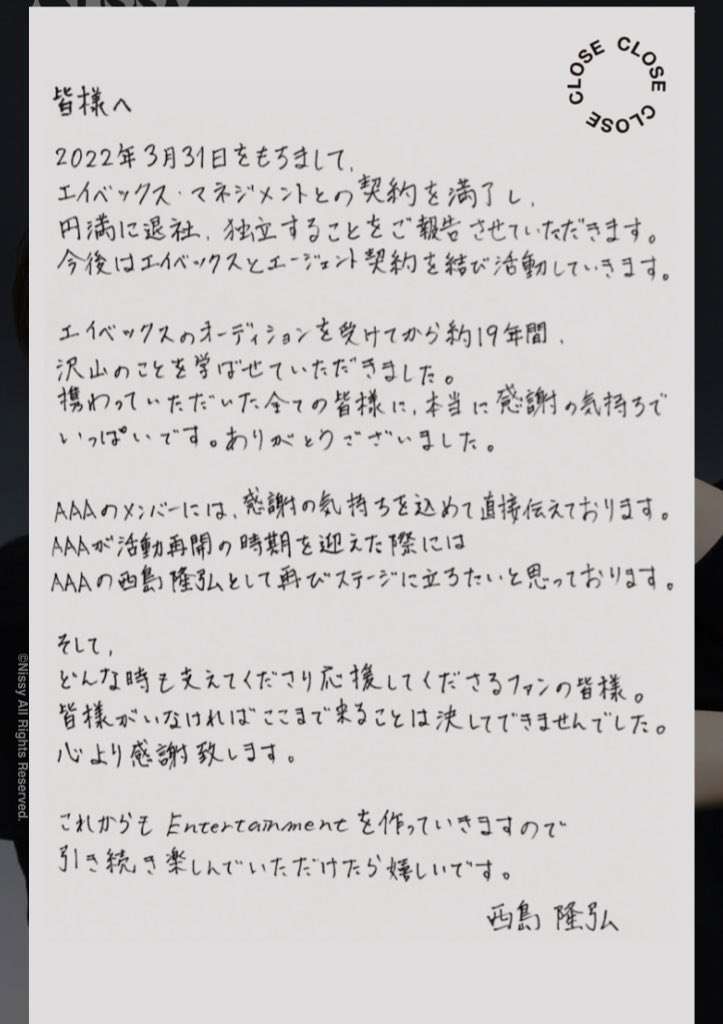 CLOSE CLOSE CLOSE CLOSE
皆様へ
2022年3月31日をもちまして、
エイベックス・マネジメントとの契約を満了し、
円満に退社、独立することをご報告させていただきます。
今後はエイベックスとエージェント契約を結び活動していきます。
エイベックスのオーディションを受けてから約19年間、
沢山のことを学ばせていただきました。
携わっていただいた全ての皆様に、本当に感謝の気持ちで
いっぱいです。ありがとうございました。
AAAのメンバーには、感謝の気持ちを込めて直接伝えております。
AAAが活動再開の時期を迎えた際には
AAAの西島隆弘として再びステージに立ちたいと思っております。
そして、
どんな時も支えてくださり応援してくださるファンの皆様。
皆様がいなければここまで来ることは決してできませんでした。
心より感謝致します。
これからも Entertainmentを作っていきますので
引き続き楽しんでいただけたら嬉しいです。
西島 隆弘
©Nissy All Rights Reserved.